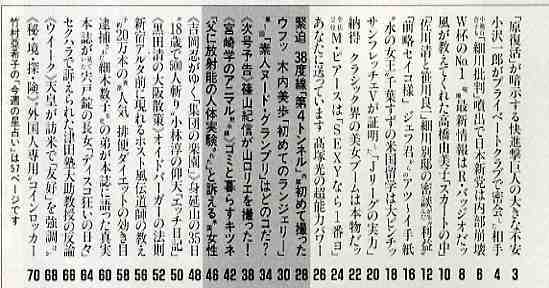 「原復活」が暗示する快進撃巨人の大きな不安 3
小沢一郎がプライベートクラブで密会した相手 4
「細川批判」噴出で日本新党は内部崩壊 6
W杯のNo.1 最新情報はR・バッジオだった 8
風が教えてくれた高橋由美子「スカートの中」 10
佐川清と笹川良一「細川別邸の密談」と「利益」 12
「前略セイコ様」ジェフ君。アツーイ手紙 16
「氷の女王」 の米国留学は大ピンチッ 18
サンフレッチェVが証明。「Jリーグの実力」 20
納得 クラシック界の美女ブームは本物だッ 22
M・ピアースは、「SEXYなら1番ヨ」 24
あなたに送っています 高塚光の超能力パワー 26
緊迫 38度線「第4トンネル」初めて撮った 28
ウフッ 木内美歩「初めてのランジェリー」 30
「素人ヌード・グランプリ」はどのコだ? 34
次号予告 篠山紀信が山口リエを撮った! 38
宮崎学のアニマル ゴミと暮らすキツネ 42
「父に放射能の人体実験」と訴える。女性 46
吉岡忍が覗く「集団の楽園」身延山の35日 48
「18歳で500人斬り」小林淳の仰天「エッチ日記」 50
黒田清の大阪散策 オイドバーガーの法則 52
新宿アルタ前に現れるホスト風伝道師の教え 58
20万本の 人気 排便ダイエットの効き目 59
逮捕「細木数子」の弟が本誌に語った真実 60
本誌が 宍戸錠の長女「ディスコ狂いの日々」 64
セクハラで訴えられた津田塾大助教授の反論 66
《ウイーク》天皇が訪米で「友好」を強調。 68
《秘・境・探・険》外国人専用「コインロッカー」 70
竹村亞希子の「今週の星占い」は57ページです